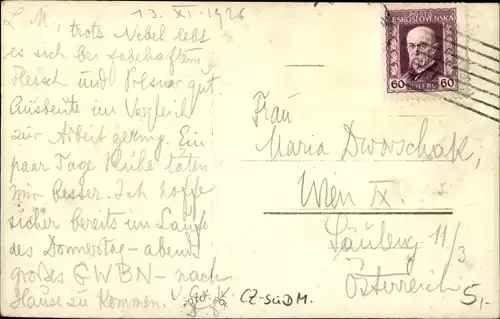 13. XI. 1926
L. M., trotz Nebel lebt
es sich bei fabelhaftem
Fleisch und Pilsner gut.
Ausbeute im Vergleich
zur Arbeit gering. Ein
paar Tage Ruhe täten
mir besser. Ich hoffe
sicher bereits im Laufe
des Donnerstag-abend
großes GWBN- nach
Hause zu kommen.
POŠTA
ČESKOSLOVENSKÁ
60 HALÉŘŮ 60
Frau
Maria Dworschak,
Wien IX.
11/3
Österreich
CZ-SÜDM.
5,-